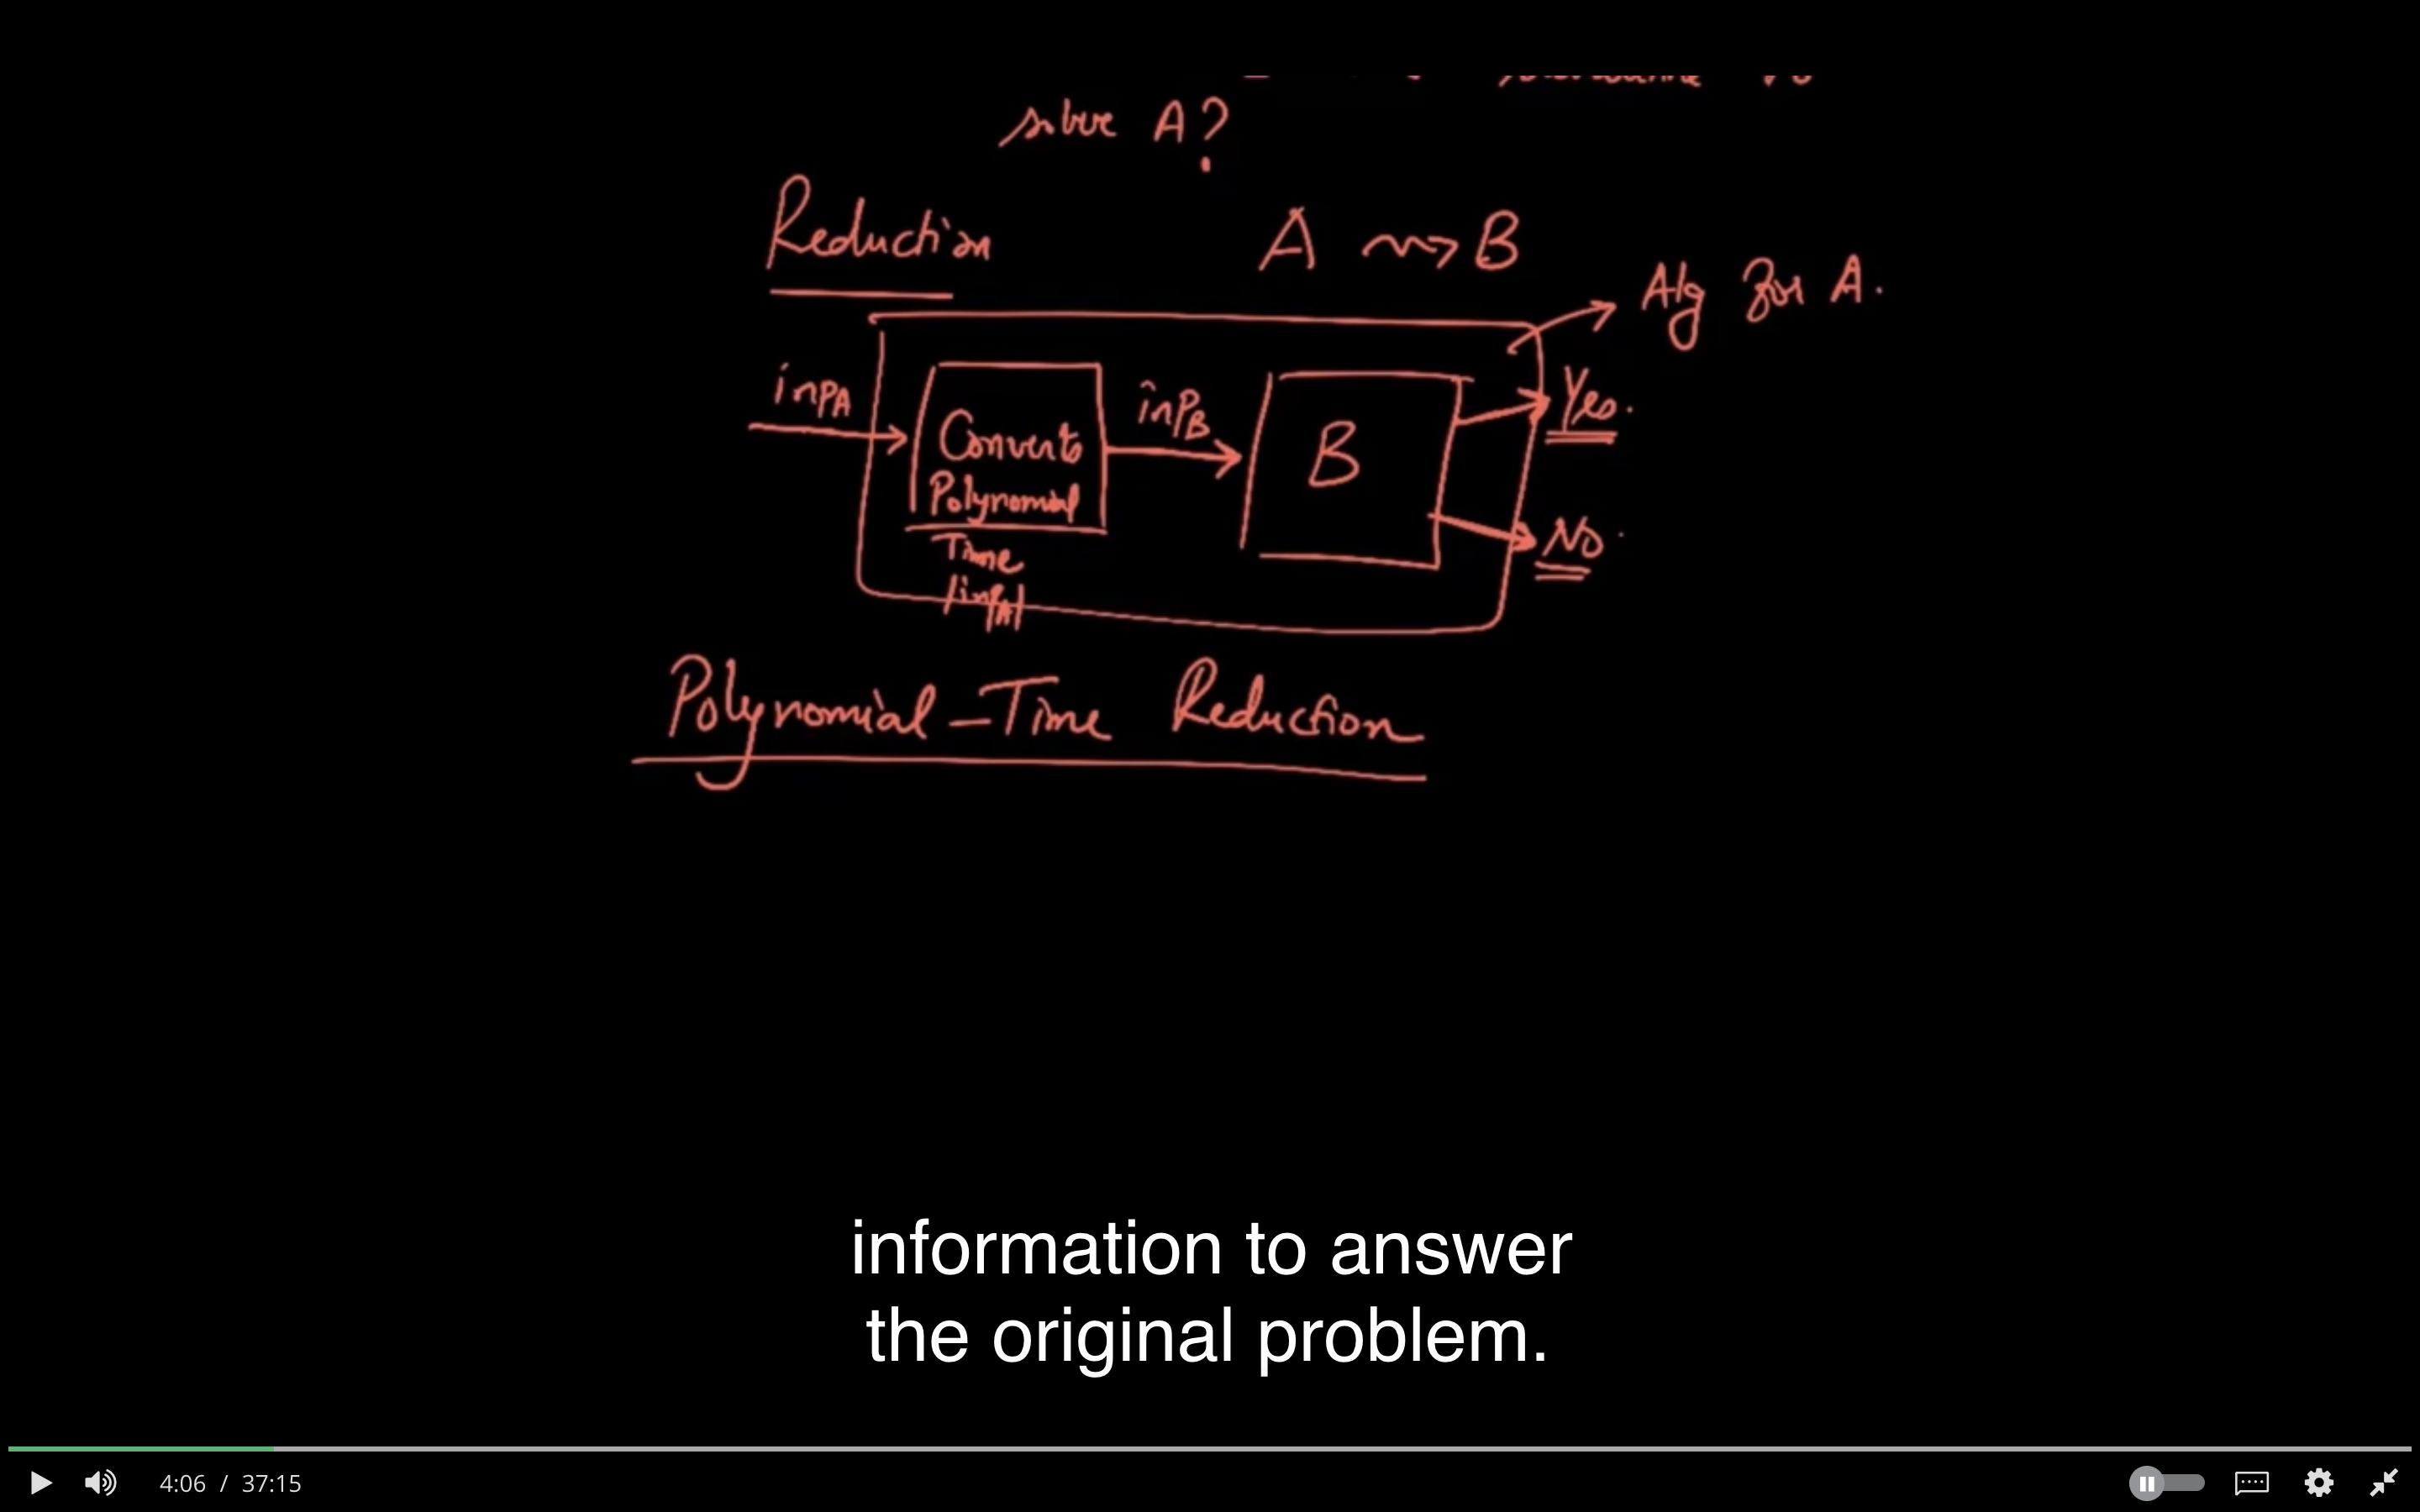 solve A?
Reduction A ⇝ B
Alg for A.
inpA
Converts
Polynomial
Time
|inpA|
inpB
B
Yes.
No.
Polynomial-Time Reduction
information to answer
the original problem.
4:06 / 37:15